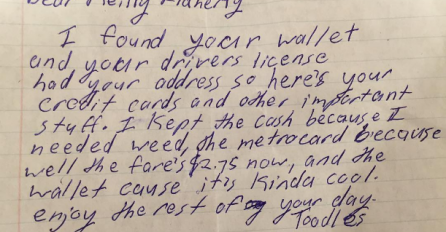 Dear Reilly Flaherty
I found your wallet
and your drivers license
had your address so here's your
credit cards and other important
stuff. I kept the cash because I
needed weed, the metrocard because
well the fare's $2.75 now, and the
wallet cause it's kinda cool.
enjoy the rest of your day.
Toodles